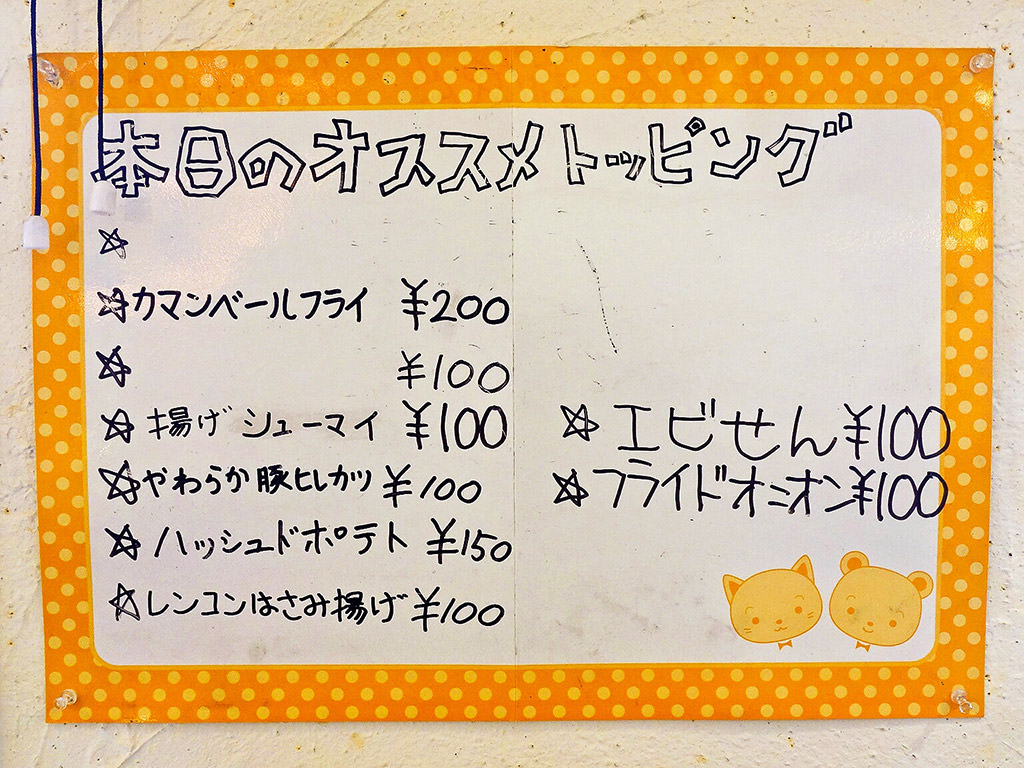 本日のオススメトッピング
☆
☆カマンベールフライ ¥200
☆ ¥100
☆揚げシューマイ ¥100
☆やわらか豚ヒレカツ ¥100
☆ハッシュドポテト ¥150
☆レンコンはさみ揚げ ¥100
☆エビせん ¥100
☆フライドオニオン ¥100